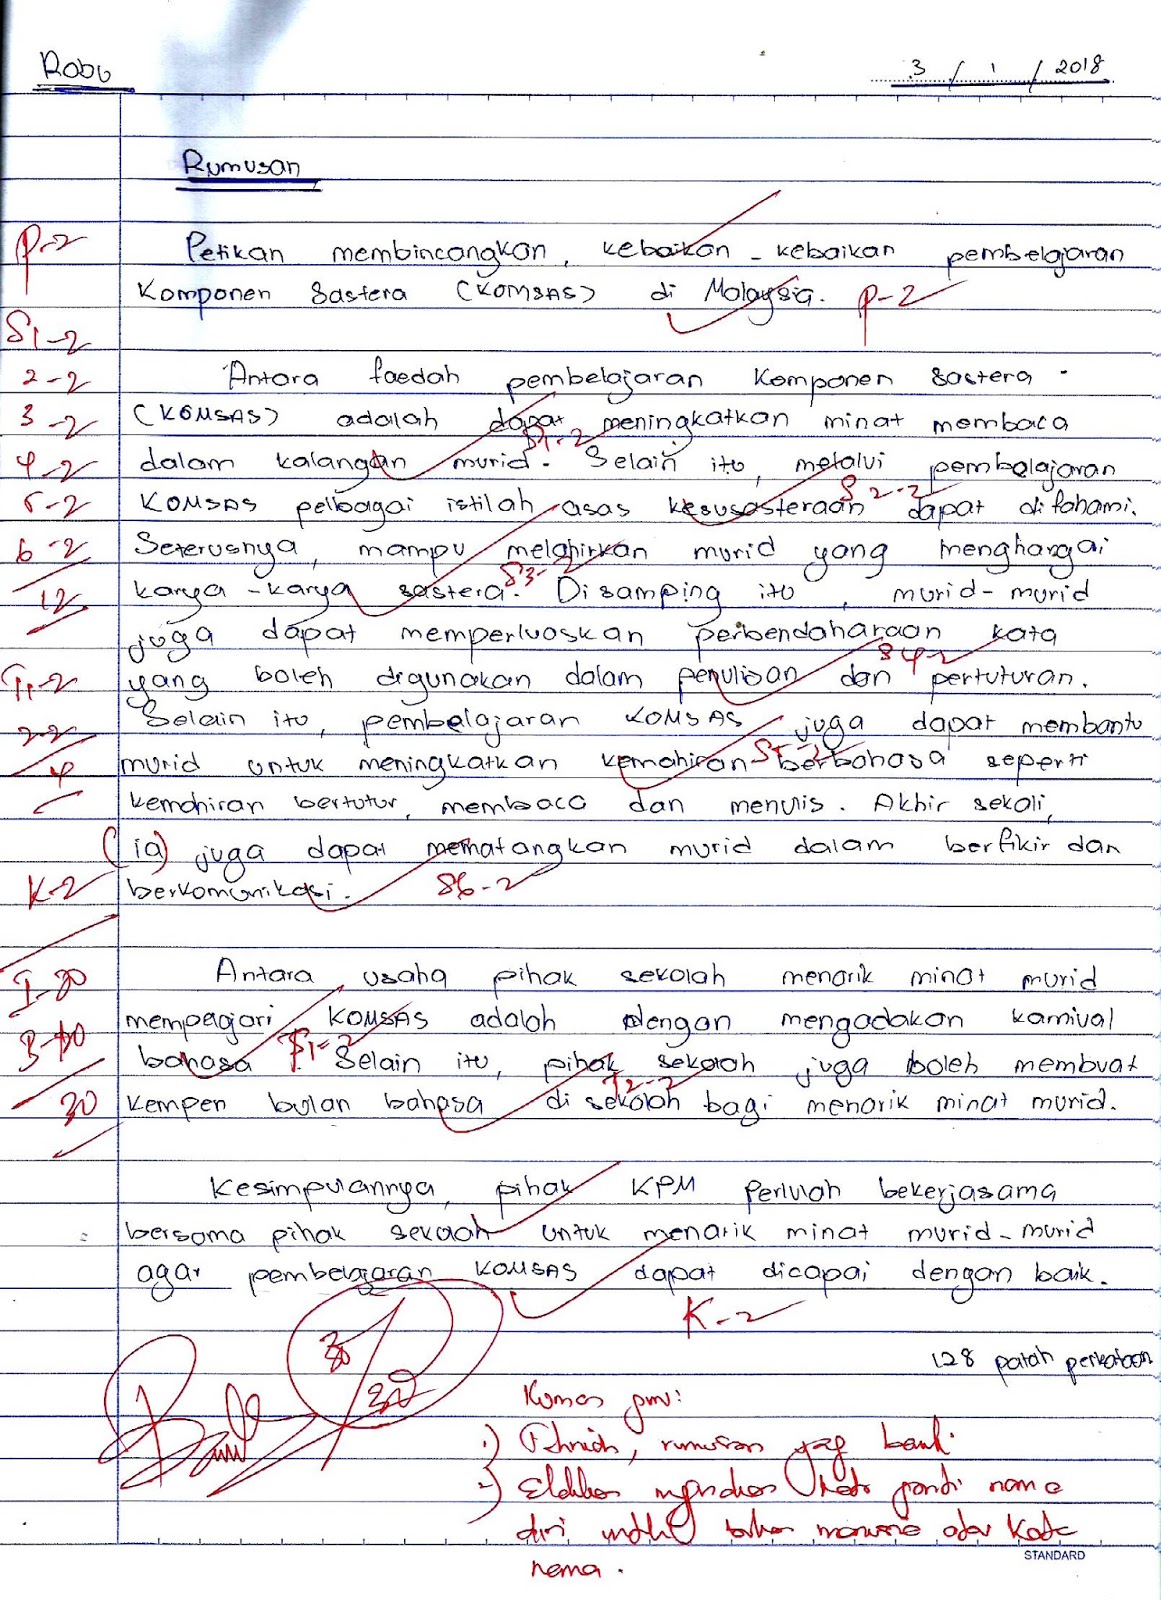 Rabu
3 / 1 / 2018
Rumusan
P-2
Petikan membincangkan, kebaikan - kebaikan pembelajaran
Komponen Sastera (KOMSAS) di Malaysia. P-2
S1-2
2-2
Antara faedah pembelajaran Komponen Sastera
3-2
(KOMSAS) adalah dapat meningkatkan minat membaca
S1-2
4-2
dalam kalangan murid. Selain itu, melalui pembelajaran
S2-2
5-2
KOMSAS pelbagai istilah asas kesusasteraan dapat difahami.
6-2
Seterusnya, mampu melahirkan murid yang menghargai
S3-2
12
karya-karya sastera. Disamping itu, murid-murid
juga dapat memperluaskan perbendaharaan kata
S4-2
T1-2
yang boleh digunakan dalam penulisan dan pertuturan.
2-2
Selain itu, pembelajaran KOMSAS juga dapat membantu
S5-2
4
murid untuk meningkatkan kemahiran berbahasa seperti
kemahiran bertutur, membaca dan menulis. Akhir sekali,
(ia) juga dapat mematangkan murid dalam berfikir dan
K-2
berkomunikasi. S6-2
I-20
Antara usaha pihak sekolah menarik minat murid
B-10
mempelajari KOMSAS adalah dengan mengadakan karnival
bahasa. T1-2 Selain itu, pihak sekolah juga boleh membuat
T2-2
30
Kempen bulan bahasa di sekolah bagi menarik minat murid.
Kesimpulannya, pihak KPM perlulah bekerjasama
bersama pihak sekolah untuk menarik minat murid-murid
agar pembelajaran KOMSAS dapat dicapai dengan baik.
K-2
128 patah perkataan
30/30
Komen guru:
1) Tahniah, rumusan yag baik.
2) Elakkan kata ganti nama
diri untuk bukan manusia atau kata
nama.
STANDARD